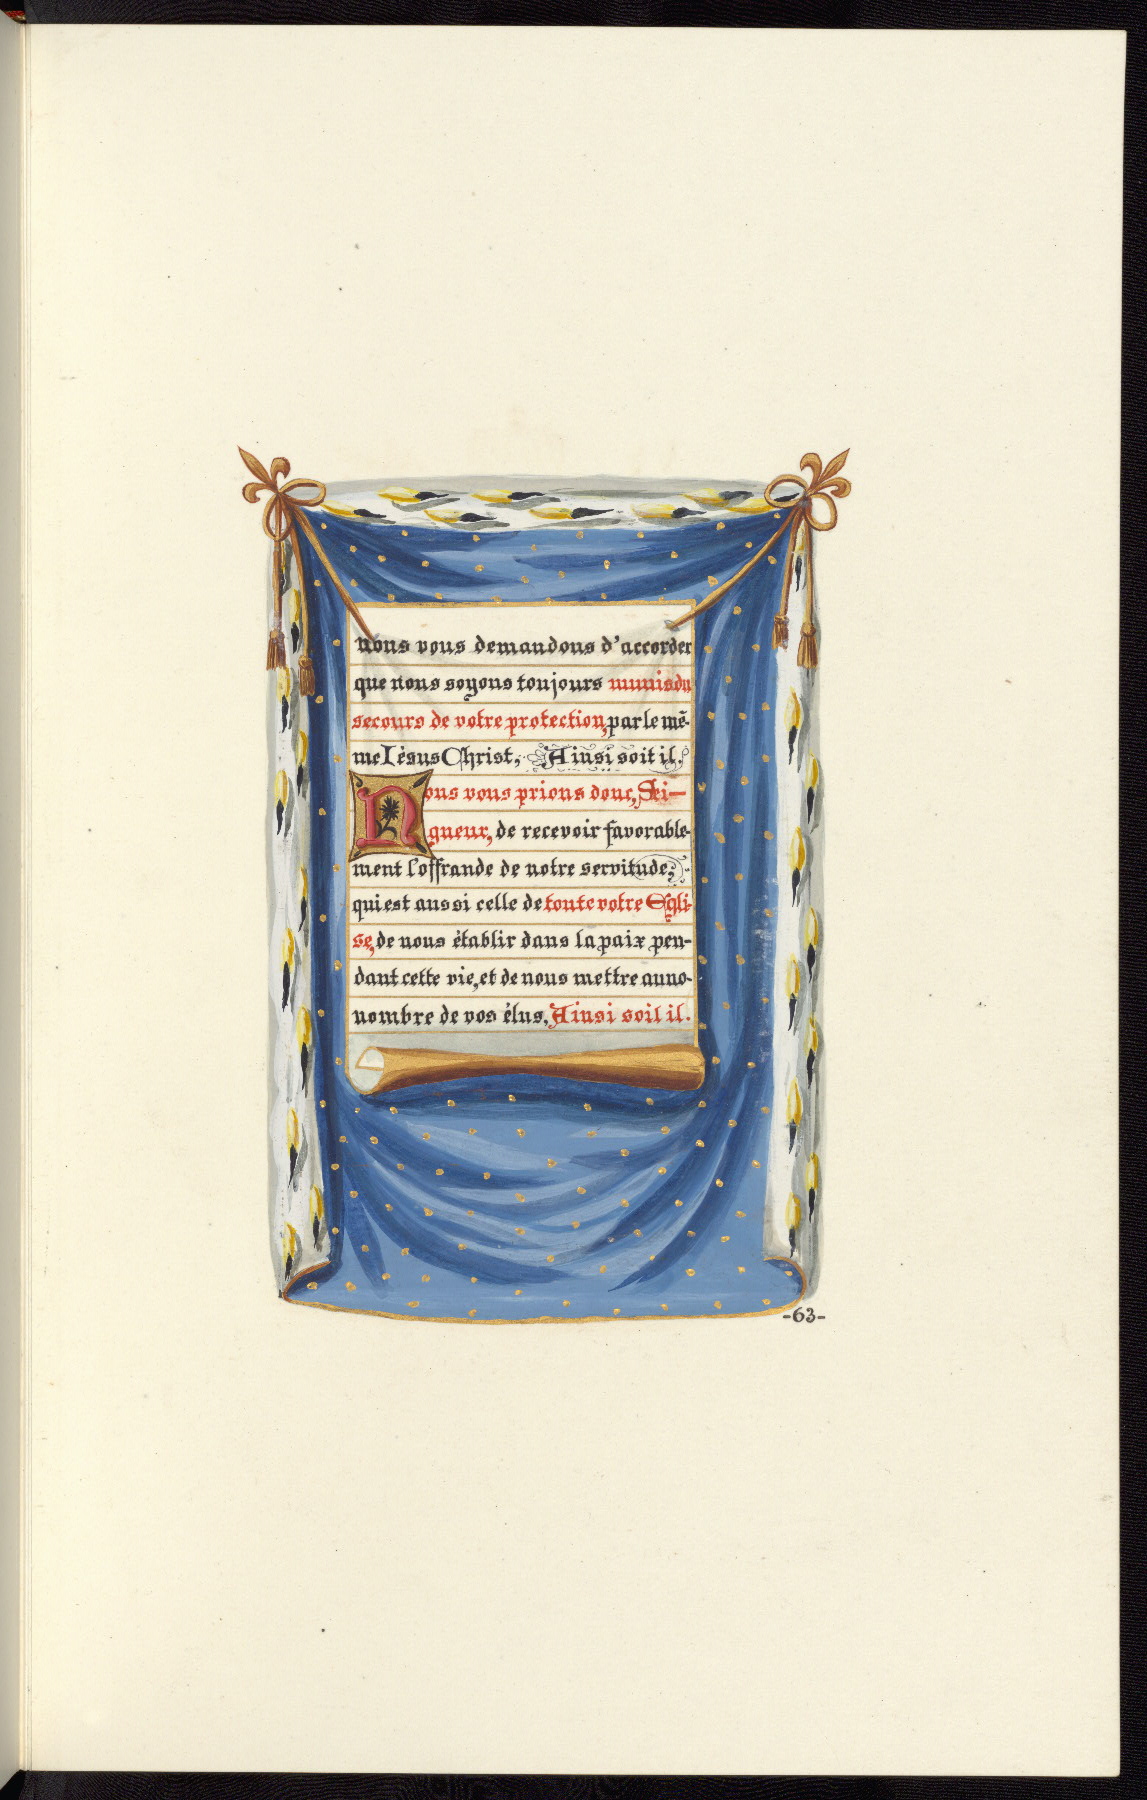 nous vous demandons d'accorder
que nous soyons toujours munis du
secours de votre protection, par le mê-
me Jésus Christ, Ainsi soit il.
Nous vous prions donc, Sei-
gneur, de recevoir favorable-
ment l'offrande de notre servitude,
qui est aussi celle de toute votre Egli-
se, de nous établir dans la paix pen-
dant cette vie, et de nous mettre au no-
nombre de vos élus, Ainsi soit il.
-63-